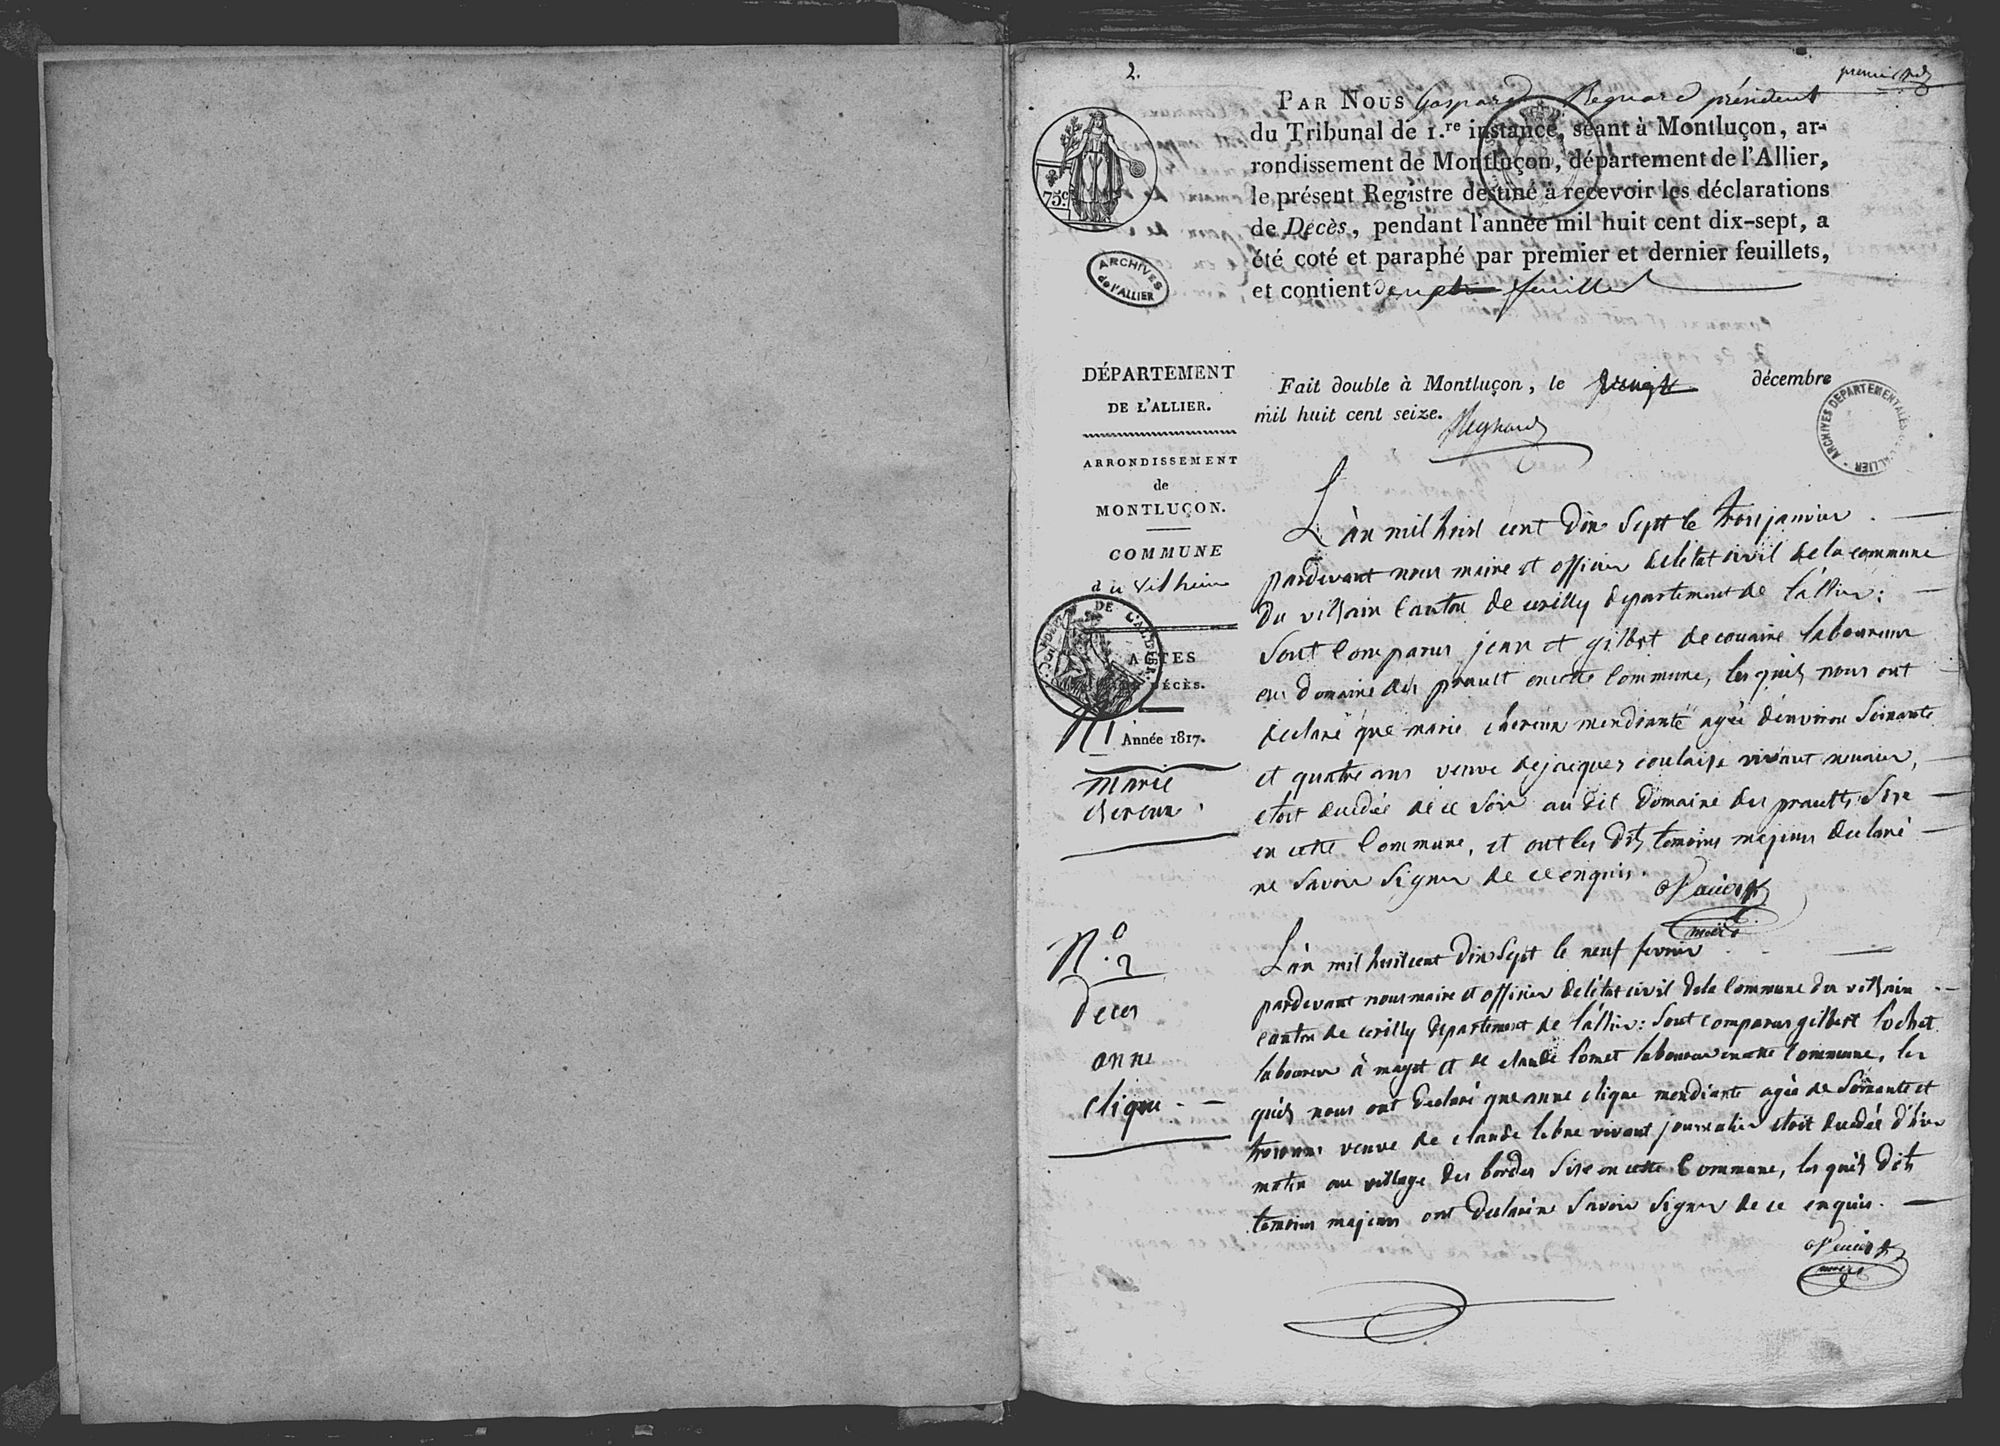 2.
premier
PAR NOUS Gaspard Regnard président
du Tribunal de 1.re instance, séant à Montluçon, ar-
rondissement de Montluçon, département de l'Allier,
le présent Registre destiné à recevoir les déclarations
de Decès, pendant l'année mil huit cent dix-sept, a
été coté et paraphé par premier et dernier feuillets,
et contient feuillets
75c
ARCHIVES
de l'ALLIER
Fait double à Montluçon, le vingt décembre
mil huit cent seize.
Regnard
ARCHIVES DEPARTEMENTALES ALLIER
DÉPARTEMENT
DE L'ALLIER.
ARRONDISSEMENT
de
MONTLUÇON.
COMMUNE
du vilhein
DE L'ALLIER
ACTES
DE DÉCÈS.
Année 1817.
N 1
marie
chereux
L'an mil huit cent dix sept le trois janvier
pardevant nous maire et officier deletat civil de la commune
du vilhain Canton de cerilly departement de l'allier:
Sont Comparus jean et gilbert de couaire laboureur
au domaine des prault en cette Commune, lesquels nous ont
declaré que marie chereux mendiante agée d'environ Soixante
et quatre ans veuve de jacques coulaise vivant
etoit decedée de ce Soir au dit domaine des praults Sise
en cette Commune, et ont les dits temoins majeurs declaré
ne Savoir Signer de ce enquis.
maire
N.o 2
Deces
anne
clique
L'an mil huit cent dix Sept le neuf fevrier
pardevant nous maire et officier deletat civil dela Commune du vilhain
canton de cerilly departement de l'allier: Sont comparus gilbert Cochet
laboureur à mayet et de claude Comet laboureur en cette Commune, les
quels nous ont declaré que anne clique mendiante agée de Soixante et
trois ans veuve de claude lebne vivant journalier etoit decedée d'hier
matin au village des bordes Sise en cette Commune, les quels dits
temoins majeurs ont declaré ne Savoir Signer de ce enquis.
maire